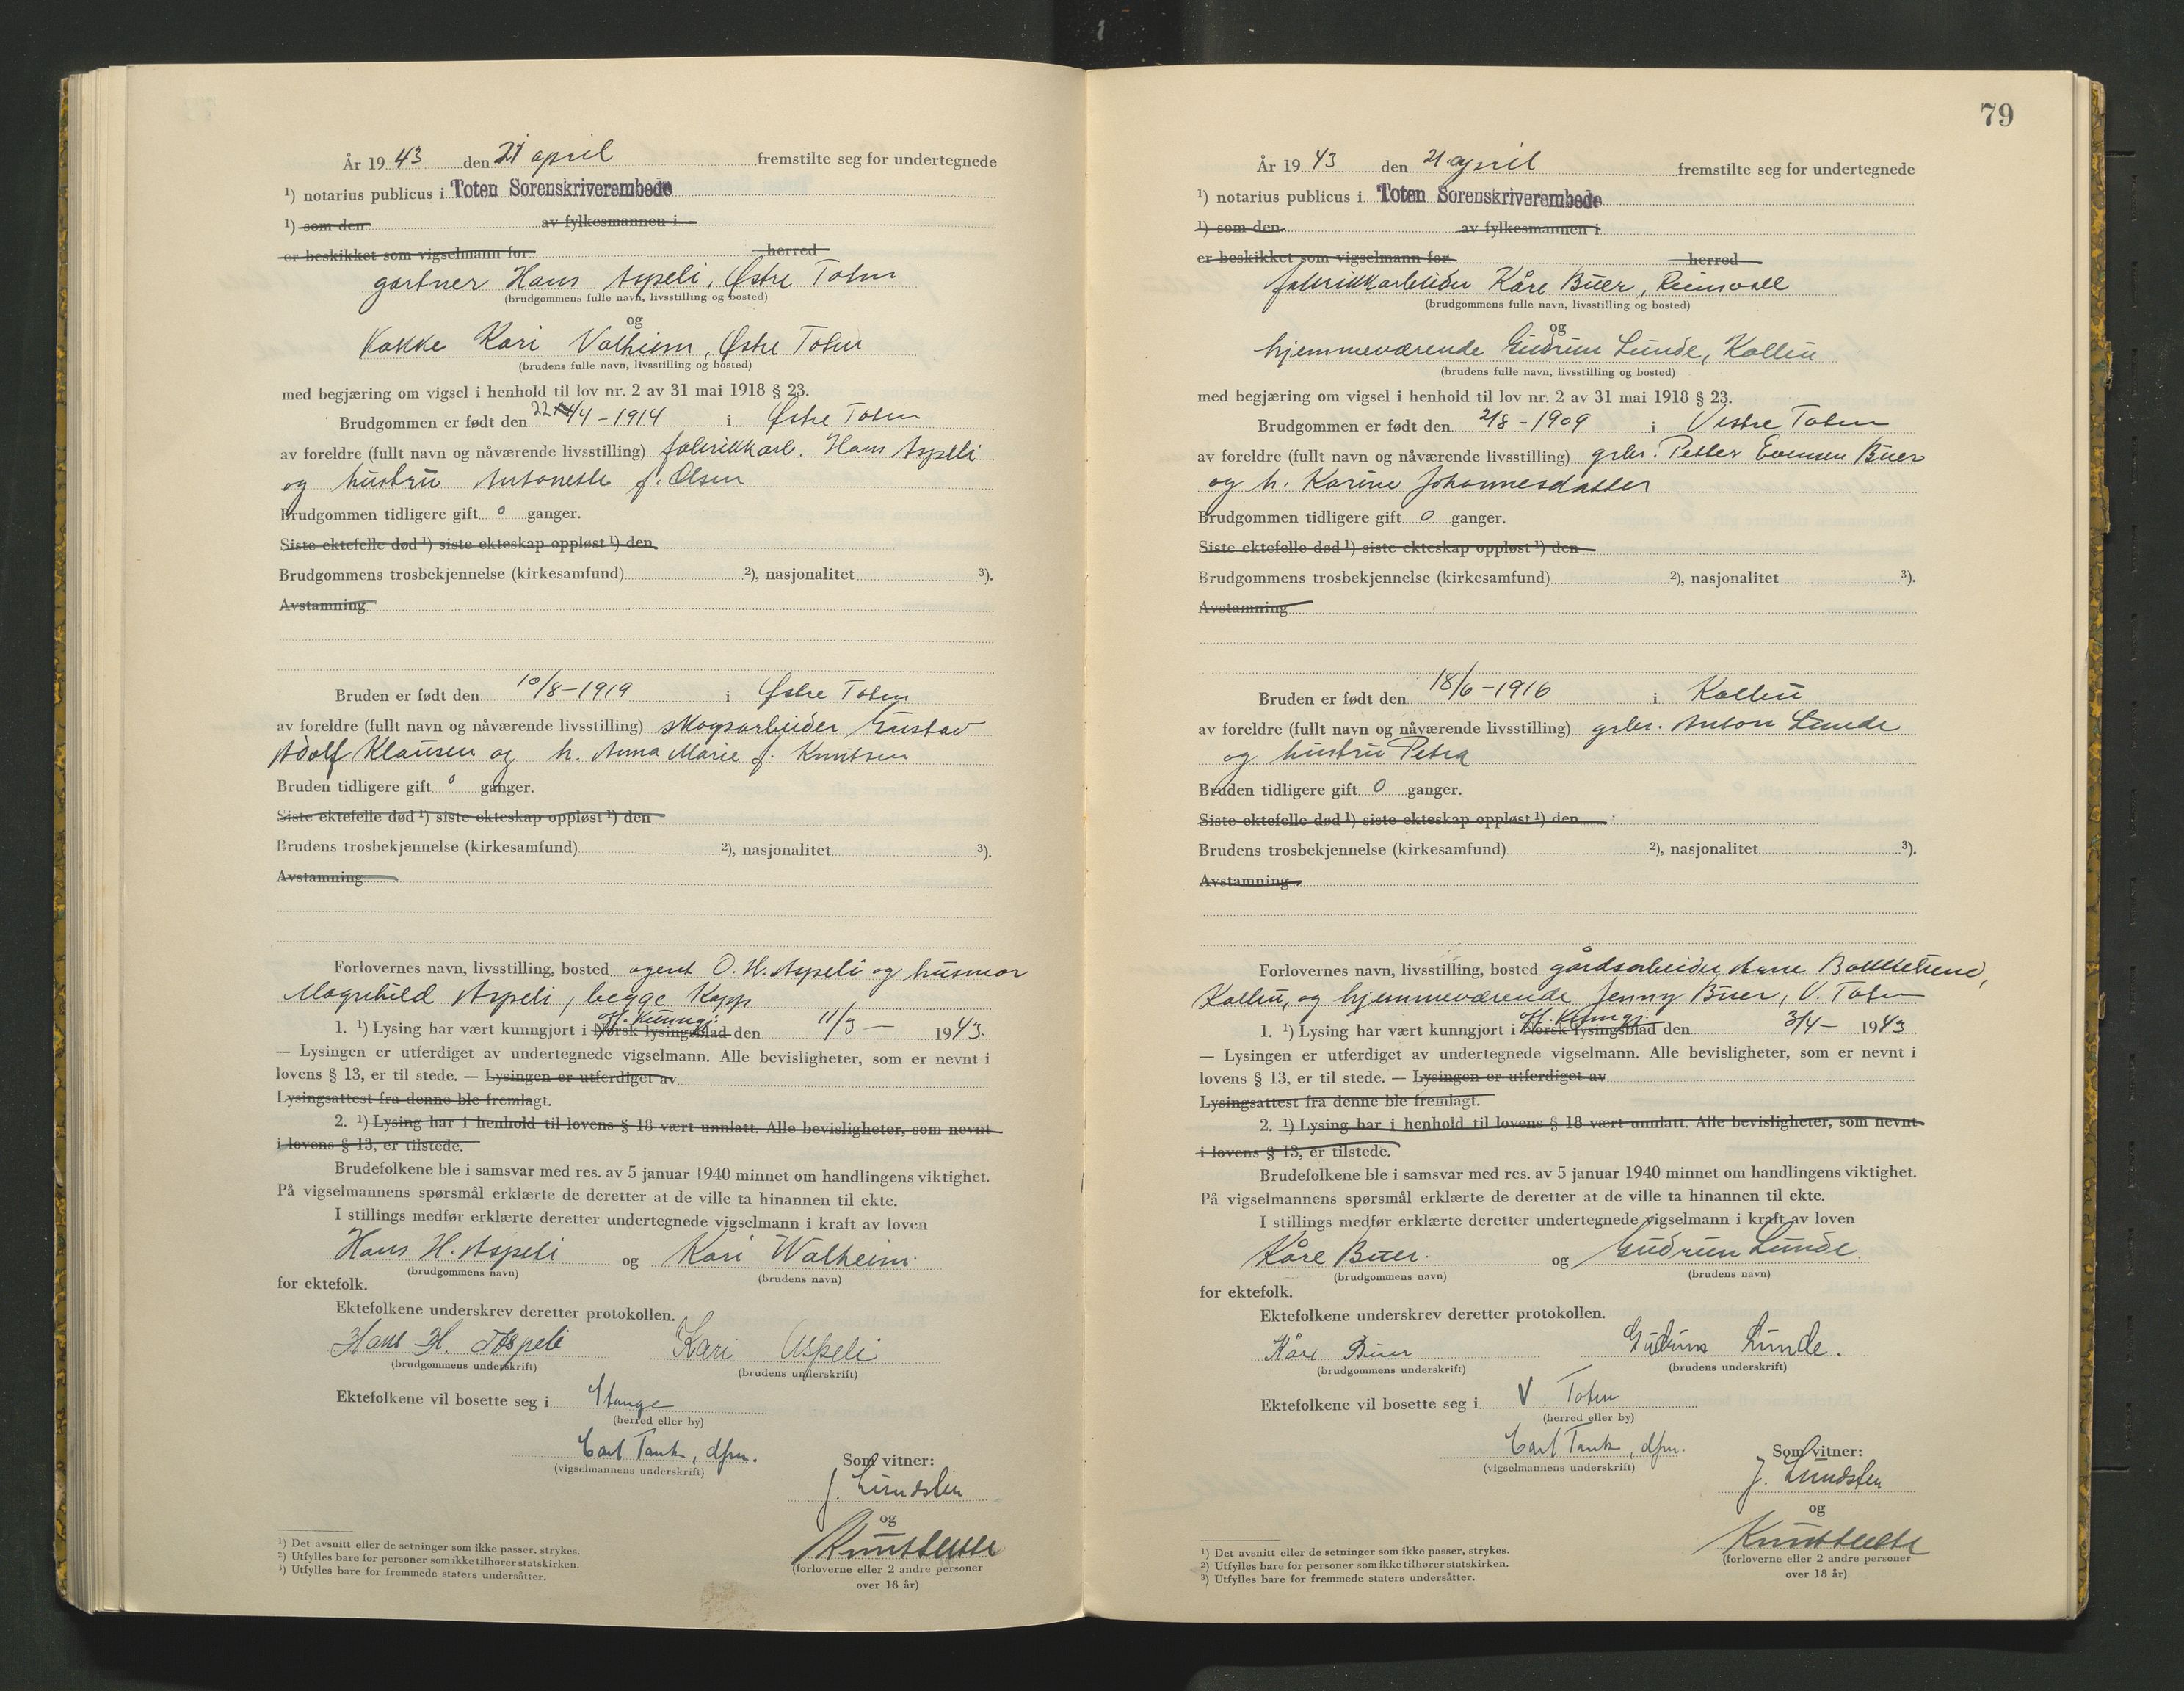 År 19 43 den 21 april fremstilte seg for undertegnede
¹) notarius publicus i Toten Sorenskriverembede
¹) som den av fylkesmannen i
er beskikket som vigselmann for herred
gartner Hans Aspeli, Østre Toten
(brudgommens fulle navn, livsstilling og bosted)
og
Kokke Kari Valheim, Østre Toten
(brudens fulle navn, livsstilling og bosted)
med begjæring om vigsel i henhold til lov nr. 2 av 31 mai 1918 § 23.
Brudgommen er født den 22/4 - 1914 i Østre Toten
av foreldre (fullt navn og nåværende livsstilling) fabrikkarb. Hans Aspeli
og hustru Antonette f. Olsen
Brudgommen tidligere gift 0 ganger.
Siste ektefelle død ¹) siste ekteskap oppløst ¹) den
Brudgommens trosbekjennelse (kirkesamfund) ²), nasjonalitet ³).
Avstamning
Bruden er født den 10/8 - 1919 i Østre Toten
av foreldre (fullt navn og nåværende livsstilling) skogsarbeider Gustav
Adolf Klausen og h. Anna Marie f. Knutsen
Bruden tidligere gift 0 ganger.
Siste ektefelle død ¹) siste ekteskap oppløst ¹) den
Brudens trosbekjennelse (kirkesamfund) ²), nasjonalitet ³).
Avstamning
Forlovernes navn, livsstilling, bosted agent O. H. Aspeli og husmor
Magnhild Aspeli, begge Kapp
off. kunngj.
1. ¹) Lysing har vært kunngjort i Norsk lysingsblad den 11/3 - 1943.
— Lysingen er utferdiget av undertegnede vigselmann. Alle bevisligheter, som er nevnt i
lovens § 13, er til stede. — Lysingen er utferdiget av
Lysingsattest fra denne ble fremlagt.
2. ¹) Lysing har i henhold til lovens § 18 vært unnlatt. Alle bevisligheter, som nevnt
i lovens § 13, er tilstede.
Brudefolkene ble i samsvar med res. av 5 januar 1940 minnet om handlingens viktighet.
På vigselmannens spørsmål erklærte de deretter at de ville ta hinannen til ekte.
I stillings medfør erklærte deretter undertegnede vigselmann i kraft av loven
Hans H. Aspeli og Kari Walheim.
(brudgommens navn) (brudens navn)
for ektefolk.
Ektefolkene underskrev deretter protokollen.
Hans H. Aspeli Kari Aspeli
(brudgommens underskrift) (brudens underskrift)
Ektefolkene vil bosette seg i Stange
(herred eller by)
Carl Tank, dfm.
(vigselmannens underskrift)
Som vitner:
J. Lundsten
og
(forloverne eller 2 andre personer
over 18 år)
¹) Det avsnitt eller de setninger som ikke passer, strykes.
²) Utfylles bare for personer som ikke tilhører statskirken.
³) Utfylles bare for fremmede staters undersåtter.
79
År 19 43 den 21. april fremstilte seg for undertegnede
¹) notarius publicus i Toten Sorenskriverembede
¹) som den av fylkesmannen i
er beskikket som vigselmann for herred
fabrikkarbeider Kåre Buer, Reinsvoll
(brudgommens fulle navn, livsstilling og bosted)
og
hjemmeværende Gudrun Lunde, Kolbu
(brudens fulle navn, livsstilling og bosted)
med begjæring om vigsel i henhold til lov nr. 2 av 31 mai 1918 § 23.
Brudgommen er født den 2/8 - 1909 i Vestre Toten
av foreldre (fullt navn og nåværende livsstilling) grbr. Petter Evensen Buer
og h. Karine Johannesdatter
Brudgommen tidligere gift 0 ganger.
Siste ektefelle død ¹) siste ekteskap oppløst ¹) den
Brudgommens trosbekjennelse (kirkesamfund) ²), nasjonalitet ³).
Avstamning
Bruden er født den 18/6 - 1916 i Kolbu
av foreldre (fullt navn og nåværende livsstilling) grbr. Anton Lunde
og hustru Petra
Bruden tidligere gift 0 ganger.
Siste ektefelle død ¹) siste ekteskap oppløst ¹) den
Brudens trosbekjennelse (kirkesamfund) ²), nasjonalitet ³).
Avstamning
Forlovernes navn, livsstilling, bosted gårdsarbeider Arne
Kolbu, og hjemmeværende Jenny Buer, V. Toten
off. kunngj.
1. ¹) Lysing har vært kunngjort i Norsk lysingsblad den 3/4 - 1943
— Lysingen er utferdiget av undertegnede vigselmann. Alle bevisligheter, som er nevnt i
lovens § 13, er til stede. — Lysingen er utferdiget av
Lysingsattest fra denne ble fremlagt.
2. ¹) Lysing har i henhold til lovens § 18 vært unnlatt. Alle bevisligheter, som nevnt
i lovens § 13, er tilstede.
Brudefolkene ble i samsvar med res. av 5 januar 1940 minnet om handlingens viktighet.
På vigselmannens spørsmål erklærte de deretter at de ville ta hinannen til ekte.
I stillings medfør erklærte deretter undertegnede vigselmann i kraft av loven
Kåre Buer. og Gudrun Lunde.
(brudgommens navn) (brudens navn)
for ektefolk.
Ektefolkene underskrev deretter protokollen.
Kåre Buer Gudrun Lunde.
(brudgommens underskrift) (brudens underskrift)
Ektefolkene vil bosette seg i V. Toten
(herred eller by)
Carl Tank, dfm.
(vigselmannens underskrift)
Som vitner:
J. Lundsten
og
(forloverne eller 2 andre personer
over 18 år)
¹) Det avsnitt eller de setninger som ikke passer, strykes.
²) Utfylles bare for personer som ikke tilhører statskirken.
³) Utfylles bare for fremmede staters undersåtter.